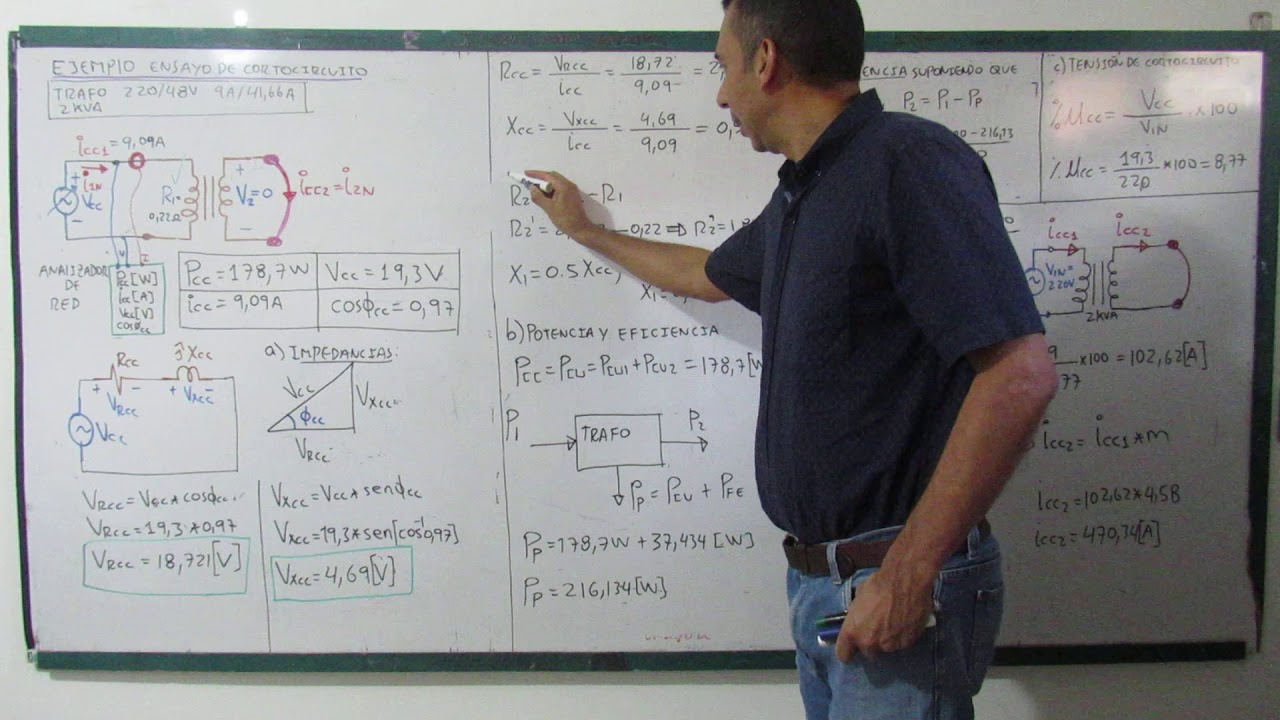 EJEMPLO ENSAYO DE CORTOCIRCUITO
TRAFO 220/48V 9A/41,66A
2KVA
icc1 = 9,09A
+
i1N
Vcc
-
R1=
0,22Ω
+
V2=0
-
icc2 = i2N
V I
ANALIZADOR
DE
RED
Pcc[W]
icc[A]
Vcc[V]
cosϕcc
Pcc = 178,7W
Vcc = 19,3V
icc = 9,09A
cosϕcc = 0,97
Rcc
jXcc
+ -
+ -
VRcc
VXcc
Vcc
a) IMPEDANCIAS:
Vcc
VXcc
ϕcc
VRcc
VRcc = Vcc*cosϕcc
VRcc = 19,3*0,97
VRcc = 18,721[V]
VXcc = Vcc*senϕcc
VXcc = 19,3*sen[cos⁻¹0,97]
VXcc = 4,69[V]
Rcc = VRcc/icc = 18,72/9,09 = 2,
Xcc = VXcc/icc = 4,69/9,09 = 0,
- R1
R2' = - 0,22 ⇒ R2' = 1,8
X1 = 0.5Xcc,
b) POTENCIA Y EFICIENCIA
Pcc = Pcu = Pcu1 + Pcu2 = 178,7[W
P1
TRAFO
P2
Pp = Pcu + PFE
Pp = 178,7W + 37,434[W]
Pp = 216,134[W]
ENCIA SUPONIENDO QUE
P2 = P1 - Pp
- 216,13
c) TENSIÓN DE CORTOCIRCUITO
%μcc = Vcc/VIN * 100
%μcc = 19,3/220 *100 = 8,77
icc1
icc2
VIN=
220V
2KVA
*100 = 102,62[A]
icc2 = icc1*m
icc2 = 102,62*4,58
icc2 = 470,34[A]